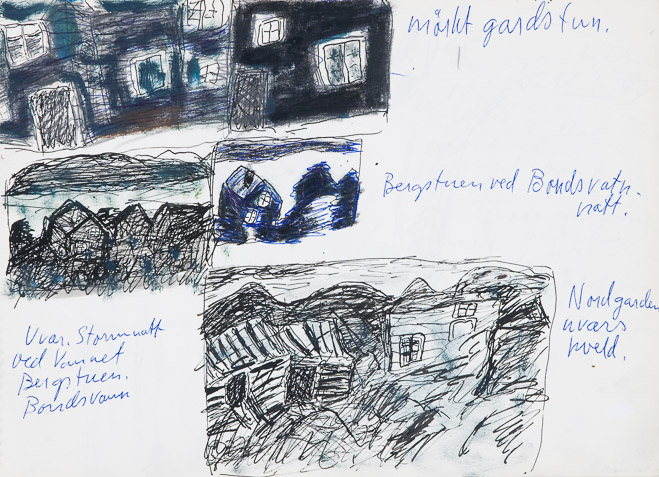 mörkt gardstun.
Bergstuen ved Bondsvatn.
natt.
Nordgarden
uværs
kveld.
Uvær. Stormnatt
ved Vannet
Bergstuen.
Bondsvann